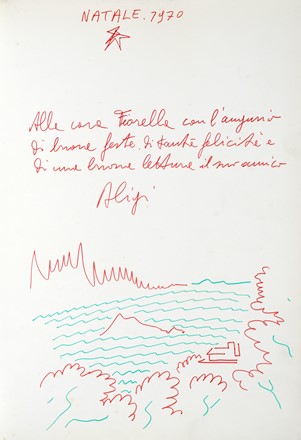 NATALE. 1970
Alla cara Fiorella con l'augurio
di buone feste, di tante felicità e
di una buona lettura il suo amico
Aligi